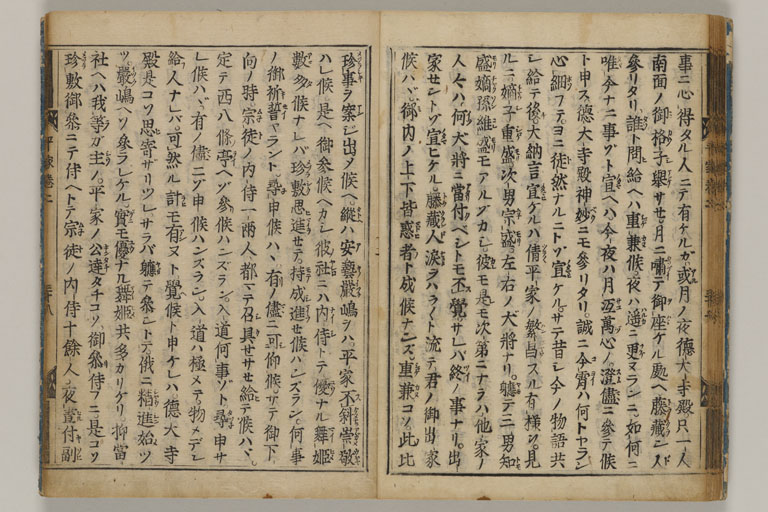 事ニ心得タル人ニテ有ケルガ或月ノ夜德大寺殿只一人
南面ノ御格子擧サセ月ニ嘯テ御座ケル處ヘ藤藏人
參リタリ誰ト問給ヘハ重兼候夜ハ遥ニ更ヌランニ如何ニ
唯今ナニ事ゾト宣ヘハ今夜ハ月冱萬心ノ澄儘ニ參テ候
ト申ス德大寺殿神妙ニモ參リタリ誠ニ今宵ハ何トヤラン
心細フテヨニ徒然ナルニトゾ宣ケルサテ昔シ今ノ物語共
シ給テ後大納言宣ケルハ倩平家ノ繁昌スル有樣ヲ見
ルニ嫡子重盛次男宗盛左右ノ大將ナリ軈テ三男知
盛嫡孫維盛モアルゾカシ彼モ是モ次第ニナラハ他家ノ
人々ハ何大將ニ當付ベシトモ不覺サレバ終ノ事ナリ出
家セントゾ宣ヒケル藤藏人淚ヲハラハラト流テ君ノ御出家
候ハヾ御內ノ上下皆惑者ト成候ナンズ重兼コソ此比
珍事ヲ案シ出メ候ヘ縱ハ安藝嚴嶋ヲハ平家不斜崇敬
ハレ候是ヘ御參候ヘカシ彼社ニハ內侍トテ優ナル舞姬
數多候ナレバ珍敷思進セテ持成進セ候ハンズラン何事
ノ御祈誓ヤラント尋申候ハヾ有ノ儘ニ可仰候サテ御下
向ノ時宗徒ノ內侍一兩人都マテ召具サセ給テ候ハヾ
定テ西八條亭ヘゾ參候ハンズラン入道何事ゾト尋申サ
レ候ハヾ有ノ儘ニゾ申候ハンズラン入道ハ極メテ物メデシ
給人ナレバ可然ル計モ有ヌト覺候ト申ケレハ德大寺
殿是コソ思寄サリツレサラバ軈テ參ントテ俄ニ精進始ツ
ツ嚴嶋ヘソ參ラレケル實モ優ナル舞姬共多カリケリ抑當
社ヘハ我等ガ主ノ平家ノ公達タチコソ御參侍フニ是コソ
珍敷御參ニテ侍ヘトテ宗徒ノ內侍十餘人夜晝付副
平家卷二